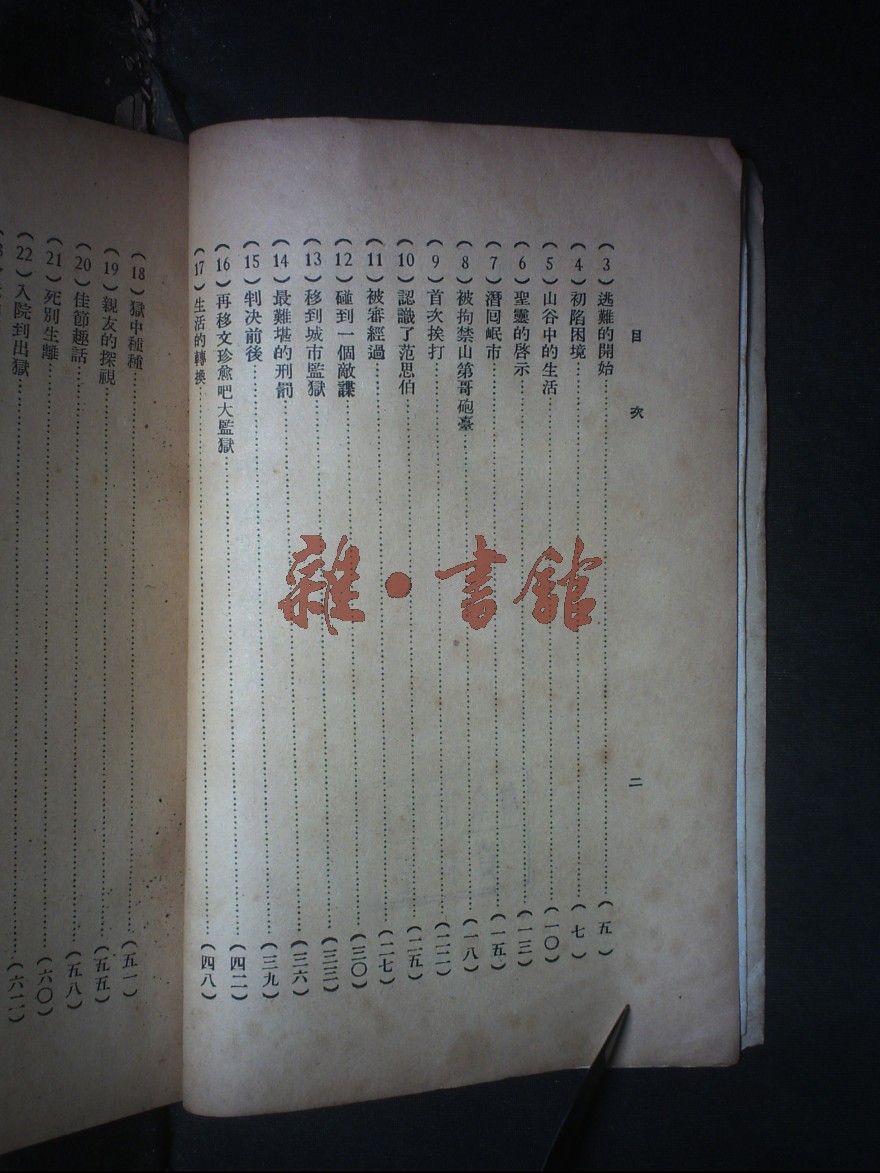 目次 二
(3)逃難的開始……(五)
(4)初陷困境……(七)
(5)山谷中的生活……(一〇)
(6)聖靈的啓示……(一三)
(7)潛回岷市……(一五)
(8)被拘禁山第哥砲臺……(一八)
(9)首次挨打……(二二)
(10)認識了范思伯……(二五)
(11)被審經過……(二七)
(12)碰到一個敵諜……(三〇)
(13)移到城市監獄……(三三)
(14)最難堪的刑罰……(三六)
(15)判决前後……(三九)
(16)再移文珍愈吧大監獄……(四二)
(17)生活的轉換……(四八)
(18)獄中種種……(五一)
(19)親友的探視……(五五)
(20)佳節趣話……(五八)
(21)死別生離……(六〇)
(22)入院到出獄……(六二)
雜·書館